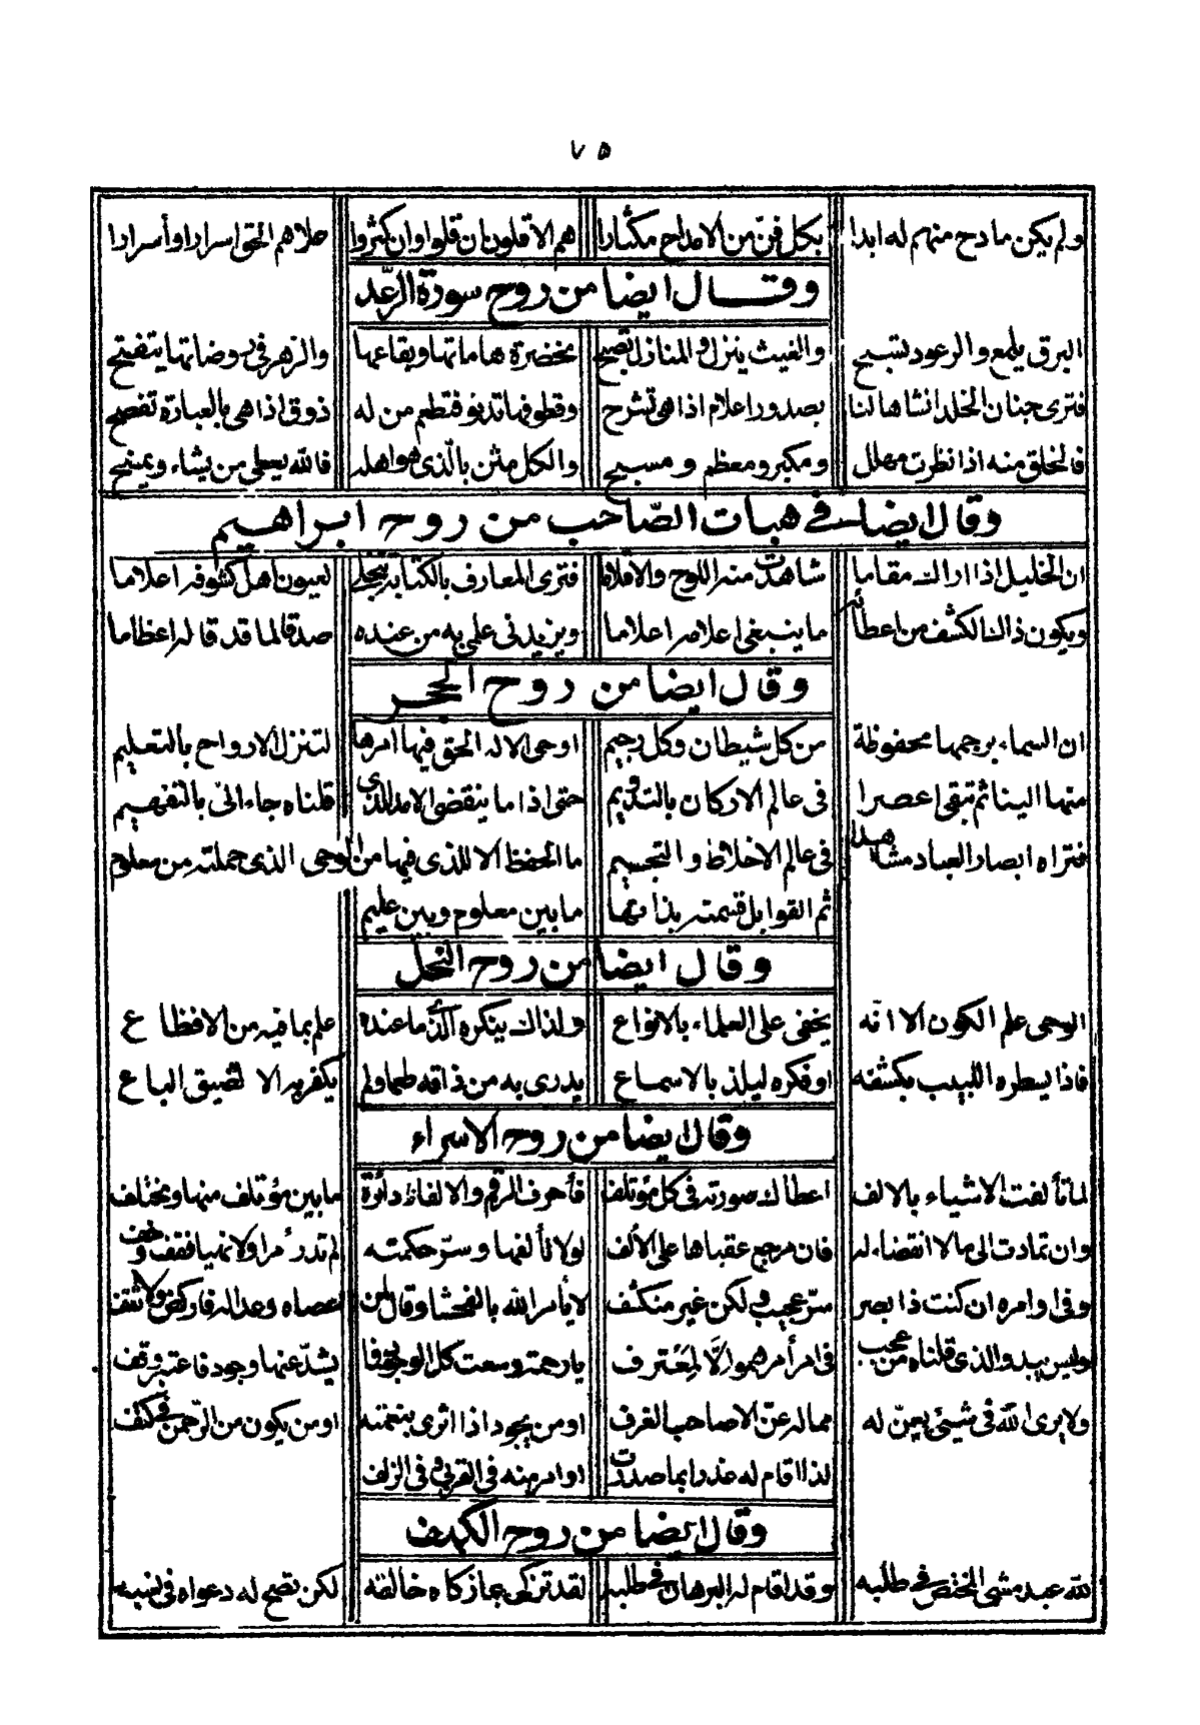 ٧٥
ولم يكن مادح منهم له ابدا بكل فنّ من الامداح مكثارا هم الاقلون ان قلوا وان كثروا حلاهم الحق اسرارا وأسرارا
وقال ايضا من روح سورة الرّعد
البرق يلمع والرعود تسبح والغيث ينزل والمنازل تصبح مخضرة هاماتها وبقاعها والزهر في روضاتها يتفتح
فترى جنان الخلد انشاها لنا بصدور اعلام اذا هي تشرح وقطوفها تدنو فتطعم من له ذوق اذا هي بالعبارة تفصح
فالخلق منه اذا نظرت مهلل ومكبر ومعظم ومسبح والكل مثن بالّذي هو اهله فالله يعطي من يشاء ويمنح
وقال ايضا في هبات الصّاحب من روح ابراهيم
ان الخليل اذا اراك مقاما شاهدت منه اللوح والاقلاما فترى المعارف بالكتابة تنجلي لعيون اهل كشوفه اعلاما
ويكون ذاك الكشف من اعطائه ما ينبغي اعلامه اعلاما ويزيدني علمي به من عنده صدقا لما قد قاله اعظاما
وقال ايضا من روح الحجر
ان السماء برجمها محفوظة من كل شيطان وكل رجيم اوحى الاله الحق فيها امرها لتنزل الارواح بالتعليم
منها الينا ثم تبقى اعصرا في عالم الاركان بالتدويم حتى اذا ما ينقضي الامد الذي قلناه جاء اليّ بالتفهيم
فتراه ابصار العباد مشاهدا في عالم الاخلاط والتجسيم ما الحفظ الا للذي فيها من الوحي الذي حملته من معلوم
ثم القوابل قسمته بذاتها ما بين معلوم وبين عليم
وقال ايضا من روح النحل
الوحي علم الكون الا انّه يخفى على العلماء بالانواع ولذاك ينكره الّذي ما عنده علم بما فيه من الافظاع
فاذا يسطره اللبيب بكشفه او فكره ليلذ بالاسماع يدري به من ذاقه طعما ولم يكفر به الا لضيق الباع
وقال ايضا من روح الاسراء
لما تألفت الاشياء بالالف اعطاك صورته في كل مؤتلف فأحرف الرقم والالفاظ دائرة ما بين مؤتلف منها ومختلف
وان تمادت الى ما لا انقضاء له فان مرجع عقباها على الألف لولا تألفها وسرّ حكمته لم تدر أمرا ولا نهيا فقف وخف
وفي اوامره ان كنت ذا بصر سرّ عجيب ولكن غير منكشف لا يأمر الله بالفحشا وقال لمن عصاه وعدا له فاركض ولا تقف
وليس يبدو الذي قلناه من عجب في امر أمرهم الّا لمعترف يا رحمة وسعت كل الوجود فما يشذّ عنها وجود فاعتبر وقف
ولا يرى الله في شيئ يعينّ له مما له عنّ الا صاحب الغرف او من يجود اذا اثرى بنعمته او من يكون من الرّحمن في كنف
لذا اقام له عذرا بما صدرت اوامر منه في القربى وفي الزلف
وقال ايضا من روح الكهف
لله عبد مشى المختص في طلبه وقد اقام له البرهان في طلبه لقد تزكى بما زكاه خالقه لكن تصح له دعواه في نسبه